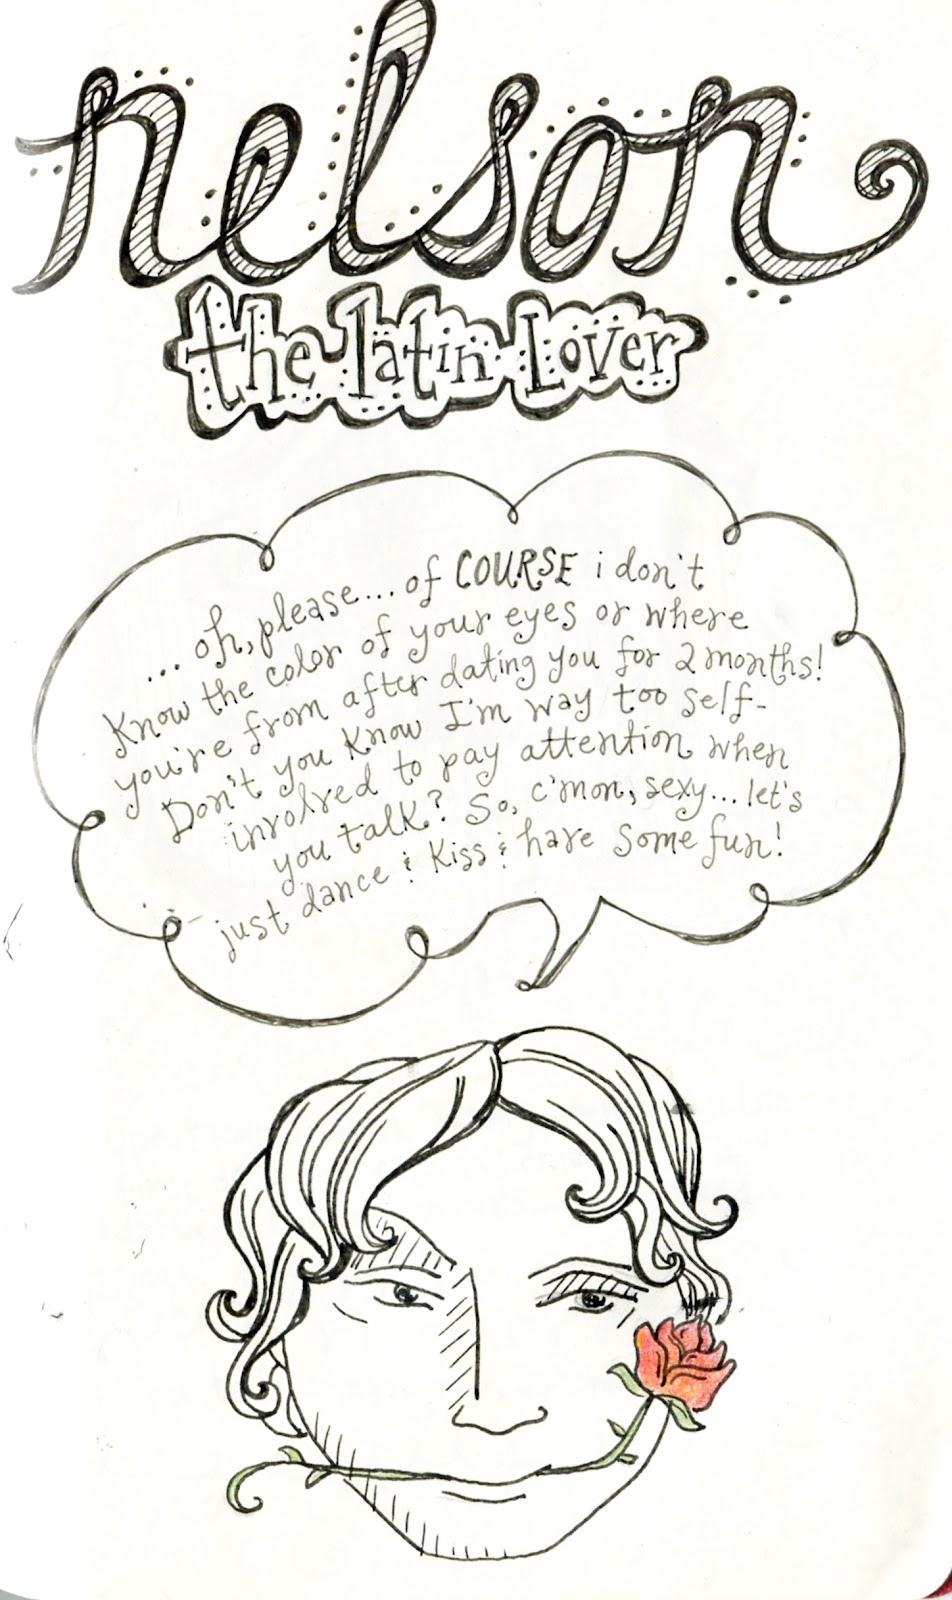 nelson
the latin Lover
... oh, please... of COURSE i don't
Know the color of your eyes or where
you're from after dating you for 2 months!
Don't you Know I'm way too self-
involved to pay attention when
you talk? So, c'mon, sexy... let's
just dance & Kiss & have some fun!